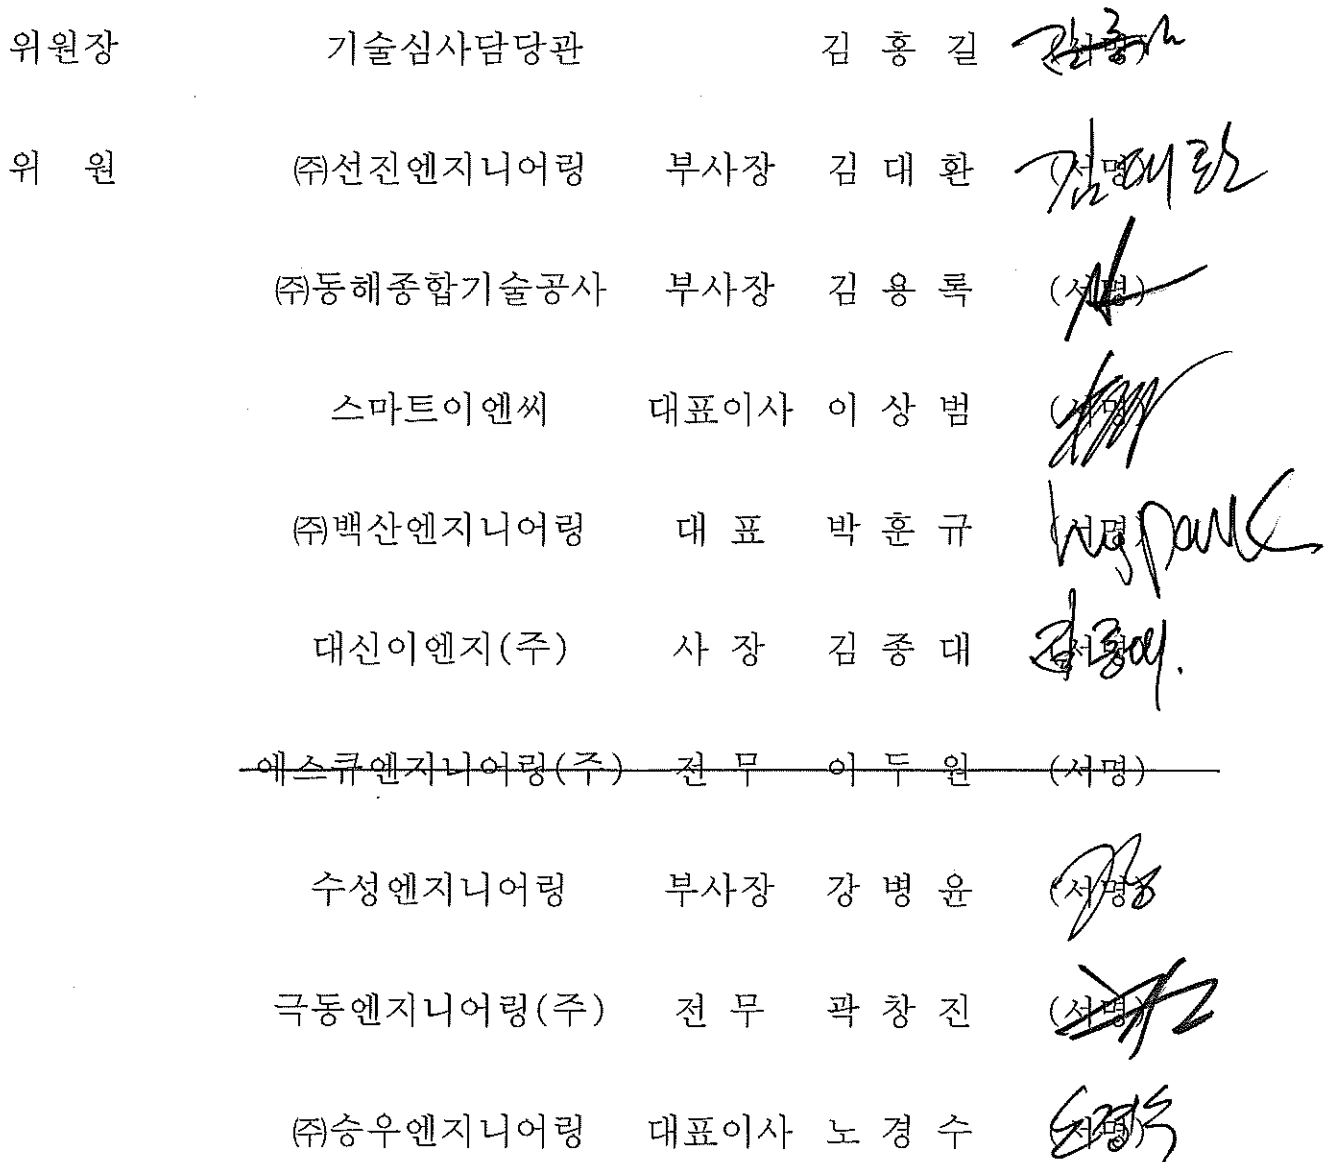 위원장 기술심사담당관 김 홍 길 (서명)
위 원 ㈜선진엔지니어링 부사장 김 대 환 (서명)
㈜동해종합기술공사 부사장 김 용 록 (서명)
스마트이엔씨 대표이사 이 상 범 (서명)
㈜백산엔지니어링 대 표 박 훈 규 (서명)
대신이엔지(주) 사 장 김 종 대 (서명)
에스큐엔지니어링(주) 전 무 이 두 원 (서명)
수성엔지니어링 부사장 강 병 윤 (서명)
극동엔지니어링(주) 전 무 곽 창 진 (서명)
㈜승우엔지니어링 대표이사 노 경 수 (서명)